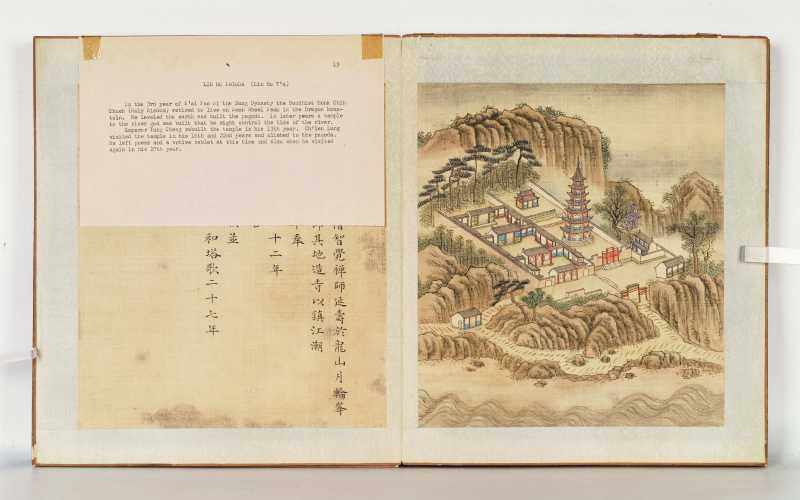 LIU HO PAGODA (Liu Ho T'a)
In the 3rd year of K'ai Pao of the Sung Dynasty the Buddhist monk Chih
Chueh (Holy Wisdom) retired to live on Moon Wheel Peak in the Dragon moun-
tain. He leveled the earth and built the pagoda. In later years a temple
to the river god was built that he might control the tide of the river.
Emperor Yung Cheng rebuilt the temple in his 13th year. Ch'ien Lung
visited the temple in his 16th and 22nd years and climbed to the pagoda.
He left poems and a votive tablet at this time and also when he visited
again in his 27th year.
智覺禪師延壽於龍山月輪峯
其地造寺以鎮江潮
奉
十二年
並
和塔歌二十七年